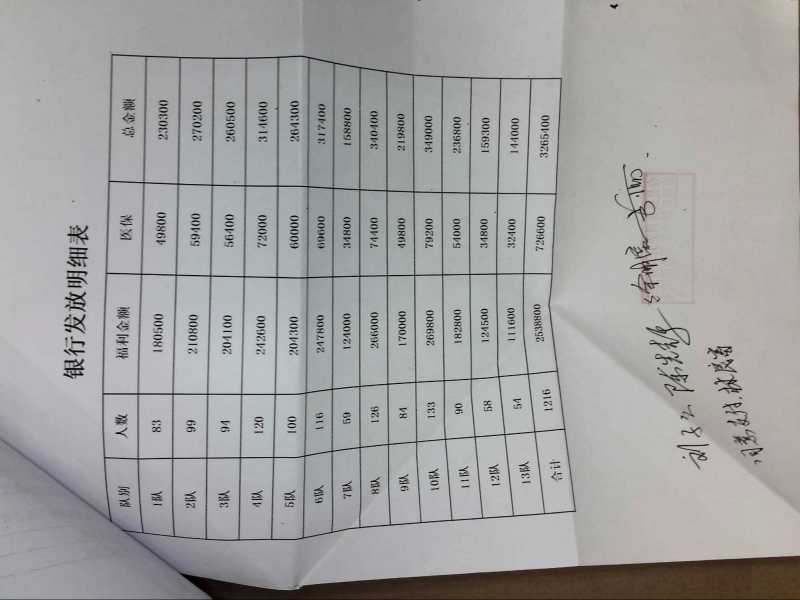 银行发放明细表
队别 人数 福利金额 医保 总金额
1队 83 180500 49800 230300
2队 99 210800 59400 270200
3队 94 204100 56400 260500
4队 120 242600 72000 314600
5队 100 204300 60000 264300
6队 116 247800 69600 317400
7队 59 124000 34800 158800
8队 126 266000 74400 340400
9队 84 170000 49800 219800
10队 133 269800 79200 349000
11队 90 182800 54000 236800
12队 58 124500 34800 159300
13队 54 111600 32400 144000
合计 1216 2538800 726600 3265400
同意支付